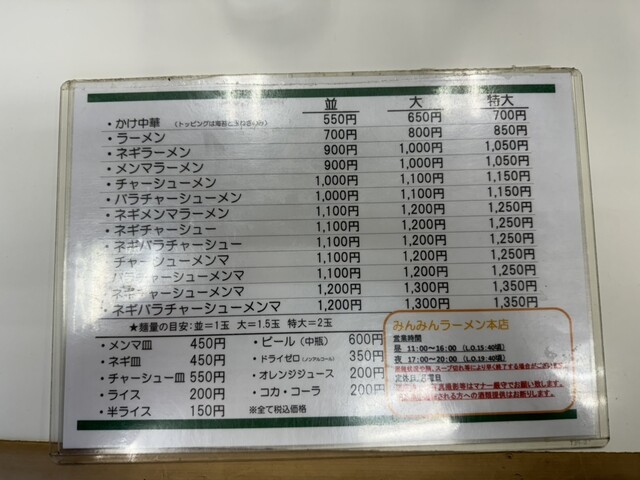 並 大 特大
・かけ中華 （トッピングは海苔と玉ねぎのみ） 550円 650円 700円
・ラーメン 700円 800円 850円
・ネギラーメン 900円 1,000円 1,050円
・メンマラーメン 900円 1,000円 1,050円
・チャーシューメン 1,000円 1,100円 1,150円
・バラチャーシューメン 1,000円 1,100円 1,150円
・ネギメンマラーメン 1,100円 1,200円 1,250円
・ネギチャーシュー 1,100円 1,200円 1,250円
・ネギバラチャーシュー 1,100円 1,200円 1,250円
・チャーシューメンマ 1,100円 1,200円 1,250円
・バラチャーシューメンマ 1,100円 1,200円 1,250円
・ネギチャーシューメンマ 1,200円 1,300円 1,350円
・ネギバラチャーシューメンマ 1,200円 1,300円 1,350円
★麺量の目安：並＝1玉 大＝1.5玉 特大＝2玉
・メンマ皿 450円
・ネギ皿 450円
・チャーシュー皿 550円
・ライス 200円
・半ライス 150円
・ビール（中瓶） 600円
・ドライゼロ（ノンアルコール） 350円
・オレンジジュース 200円
・コカ・コーラ 200円
※全て税込価格
みんみんラーメン本店
営業時間
昼 11:00～16:00 （L.O.15:40頃）
夜 17:00～20:00 （L.O.19:40頃）
スープ切れ等により早く終了する場合がございます。
定休日 月曜日
写真撮影等はマナー厳守でお願い致します。
される方への酒類提供はお断りします。